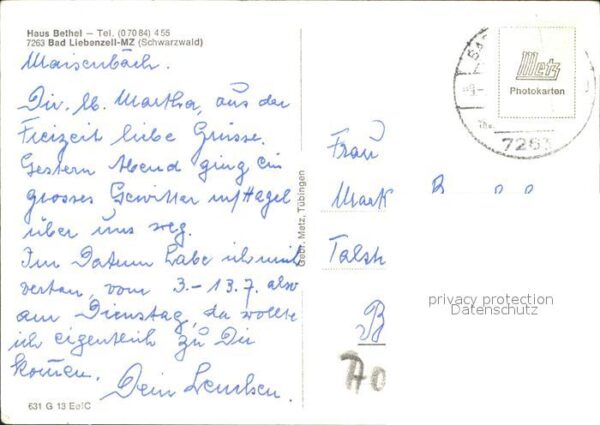 Haus Bethel — Tel. (0 70 84) 4 55
7263 Bad Liebenzell-MZ (Schwarzwald)
Maisenbach.
Dir, lb. Martha, aus der
Freizeit liebe Grüsse.
Gestern Abend ging ein
grosses Gewitter m/Hagel
über uns weg.
Im Datum habe ich mich
vertan, vom 3. - 13. 7. also
am Dienstag, da wollte
ich eigentlich zu Dir
kommen.
Dein Lenchen.
631 G 13 EefC
Gebr. Metz, Tübingen
Metz
Photokarten
7263
Frau
Mart
Talst
B
70
privacy protection
Datenschutz